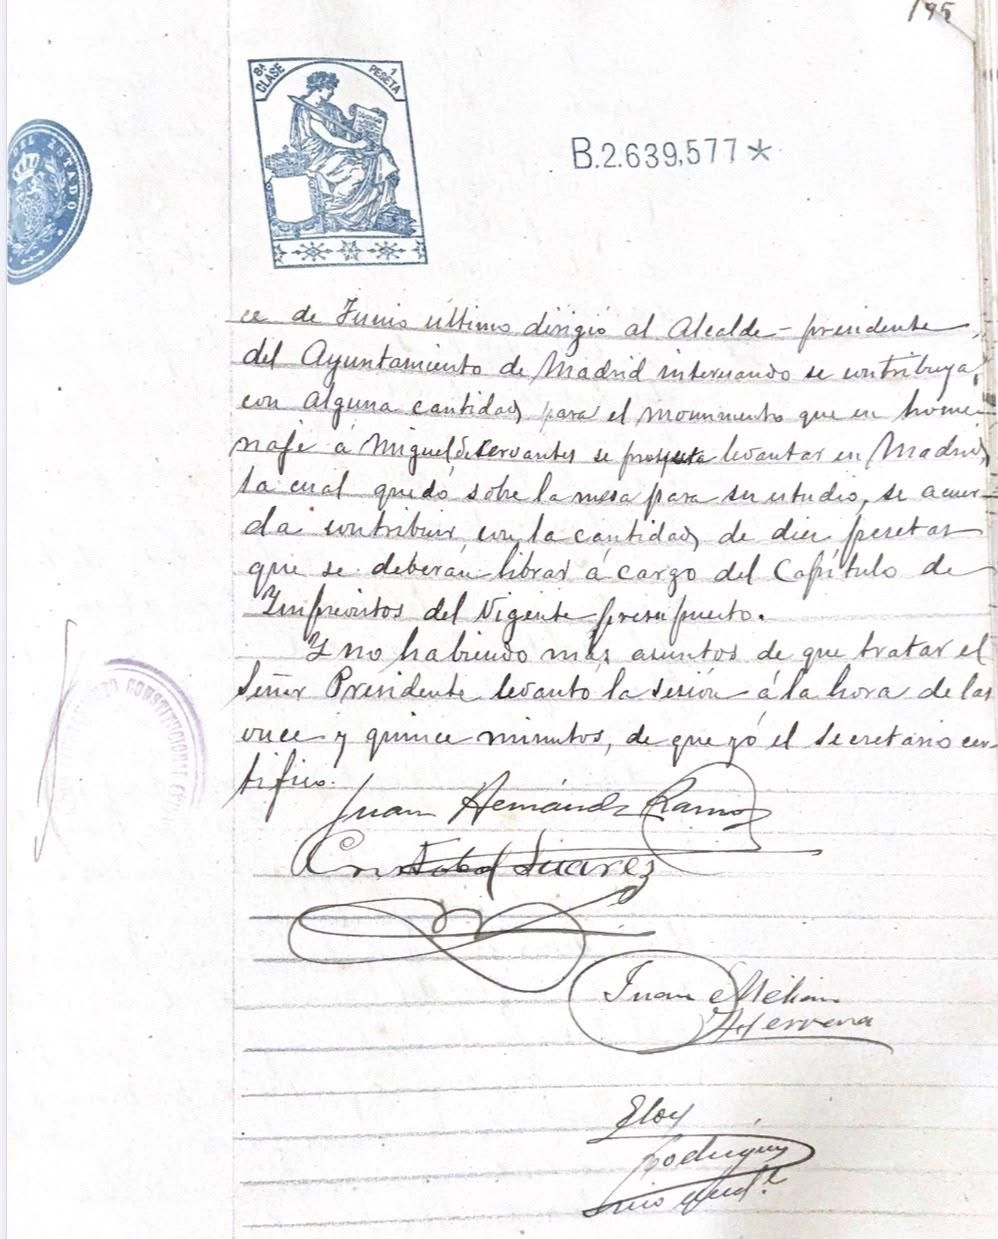 195
8ª CLASE
1 PESETA
DEL ESTADO
B.2.639,577*
ce de Junio último dirigió al Alcalde-presidente
del Ayuntamiento de Madrid interesando se contribuya
con alguna cantidad, para el monumento que en home-
naje á Miguel de Cervantes se proyecta levantar en Madrid,
la cual quedó sobre la mesa para su estudio, se acuer-
da contribuir con la cantidad, de diez pesetas
que se deberán librar á cargo del Capítulo de
Imprevistos del Vigente presupuesto.
Y no habiendo más asuntos de que tratar el
Señor Presidente levantó la sesión á la hora de las
once y quince minutos, de que yó el secretario cer-
tifico.
CONSTITUCIONAL
Juan Hernández Ramos
Cristobal Suarez
Juan Melian
Herrera
Eloy
Rodriguez